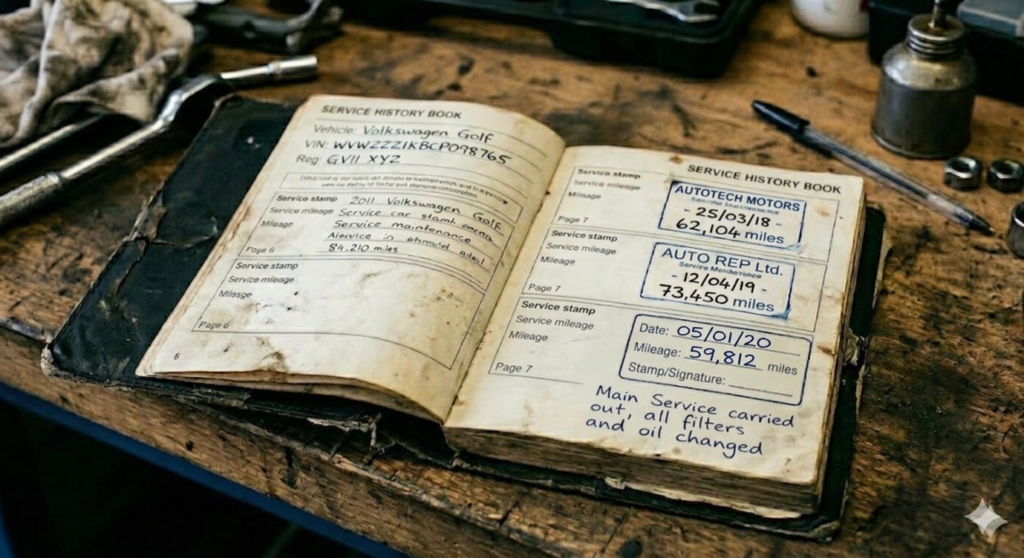 SERVICE HISTORY BOOK
Vehicle: Volkswagen Golf
VIN: WVWZZZ1KBCP098765
Reg: GV11 XYZ
Service stamp 2011 Volkswagen Golf
Service mileage Service car
Mileage Service maintenance
in
Page 6 84,210 miles
Service stamp
Service mileage
Mileage
Page 6
6
SERVICE HISTORY BOOK
Service stamp
Service mileage
Mileage
Page 7
AUTOTECH MOTORS
- 25/03/18 -
62,104 miles
Service stamp
Service mileage
Mileage
Page 7
AUTO REP Ltd.
- 12/04/19 -
73,450 miles
Service stamp
Service mileage
Mileage
Page 7
Date: 05/01/20
Mileage: 59,812 miles
Stamp/Signature:
Main Service carried
out, all filters
and oil changed
7